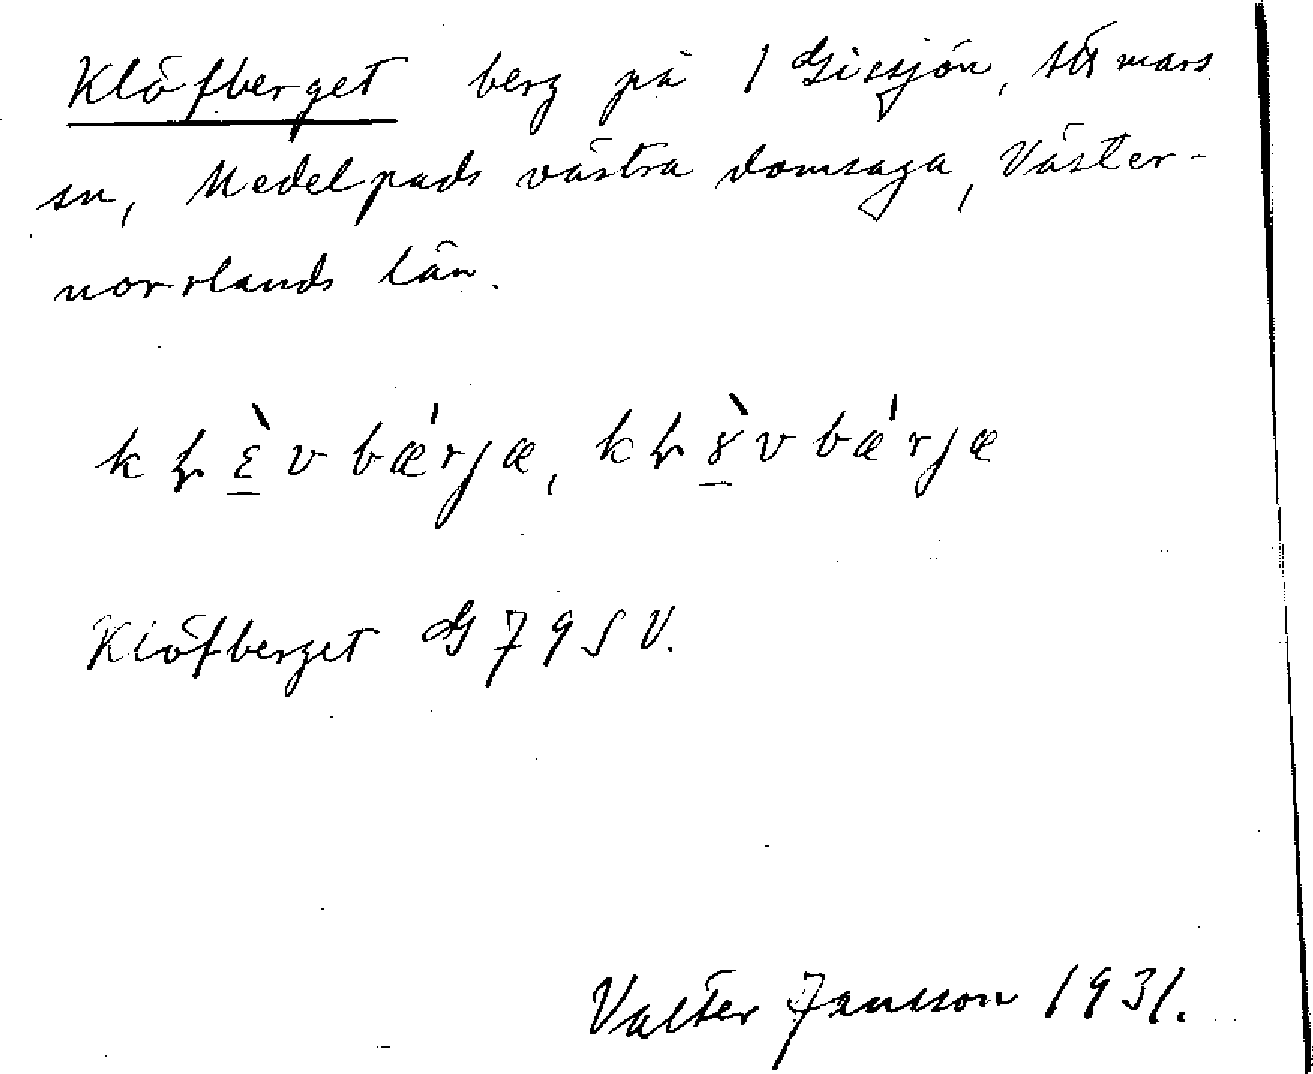 Klöfberget berg på 1 Gissjön, Attmars
sn, Medelpads västra domsaga, Väster-
norrlands län.
Klöfberget G 79 SV.
Valter Jansson 1931.